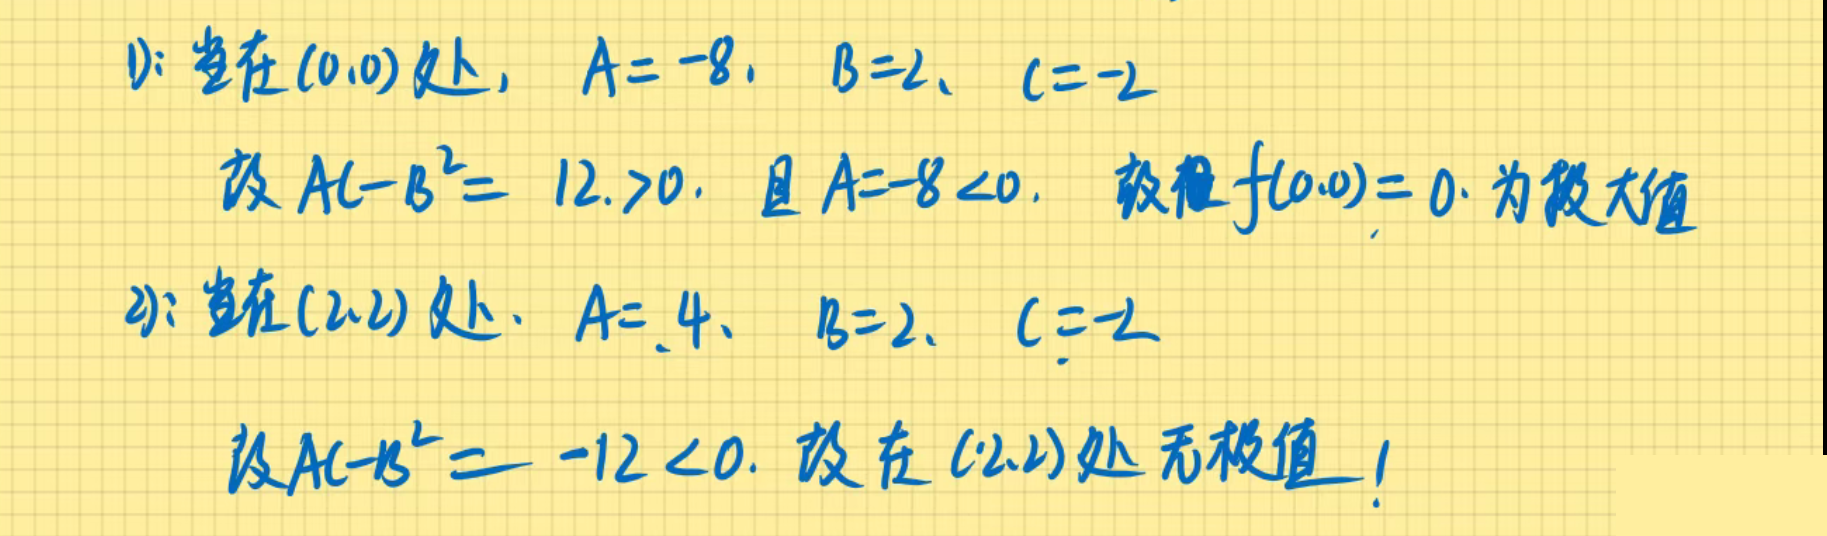 1): 当在(0,0)处, A=-8, B=2、 C=-2
故 AC-B²= 12.>0. 且 A=-8<0. 故 f(0,0)=0. 为极大值
2): 当在(2,2)处、 A=4、 B=2、 C=-2
故AC-B²= -12<0. 故在(2,2)处无极值!